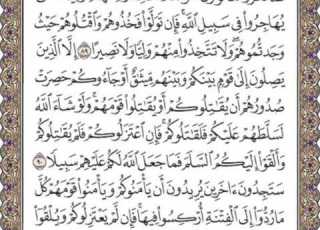 يُهَاجِرُوا۟ فِى سَبِيلِ ٱللَّهِ فَإِن تَوَلَّوْا۟ فَخُذُوهُمْ وَٱقْتُلُوهُمْ حَيْثُ
وَجَدتُّمُوهُمْ وَلَا تَتَّخِذُوا۟ مِنْهُمْ وَلِيًّا وَلَا نَصِيرًا ٨٩ إِلَّا ٱلَّذِينَ
يَصِلُونَ إِلَىٰ قَوْمٍۭ بَيْنَكُمْ وَبَيْنَهُم مِّيثَٰقٌ أَوْ جَآءُوكُمْ حَصِرَتْ
صُدُورُهُمْ أَن يُقَٰتِلُوكُمْ أَوْ يُقَٰتِلُوا۟ قَوْمَهُمْ وَلَوْ شَآءَ ٱللَّهُ
لَسَلَّطَهُمْ عَلَيْكُمْ فَلَقَٰتَلُوكُمْ فَإِنِ ٱعْتَزَلُوكُمْ فَلَمْ يُقَٰتِلُوكُمْ
وَأَلْقَوْا۟ إِلَيْكُمُ ٱلسَّلَمَ فَمَا جَعَلَ ٱللَّهُ لَكُمْ عَلَيْهِمْ سَبِيلًا ٩٠
سَتَجِدُونَ ءَاخَرِينَ يُرِيدُونَ أَن يَأْمَنُوكُمْ وَيَأْمَنُوا۟ قَوْمَهُمْ كُلَّ
مَا رُدُّوٓا۟ إِلَى ٱلْفِتْنَةِ أُرْكِسُوا۟ فِيهَا فَإِن لَّمْ يَعْتَزِلُوكُمْ وَيُلْقُوٓا۟